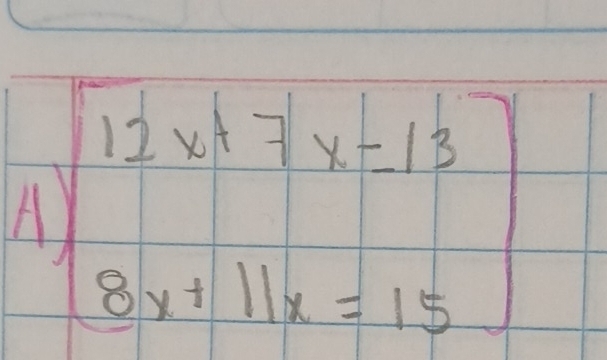 12x + 7x = 13
A)
8x + 11x = 15